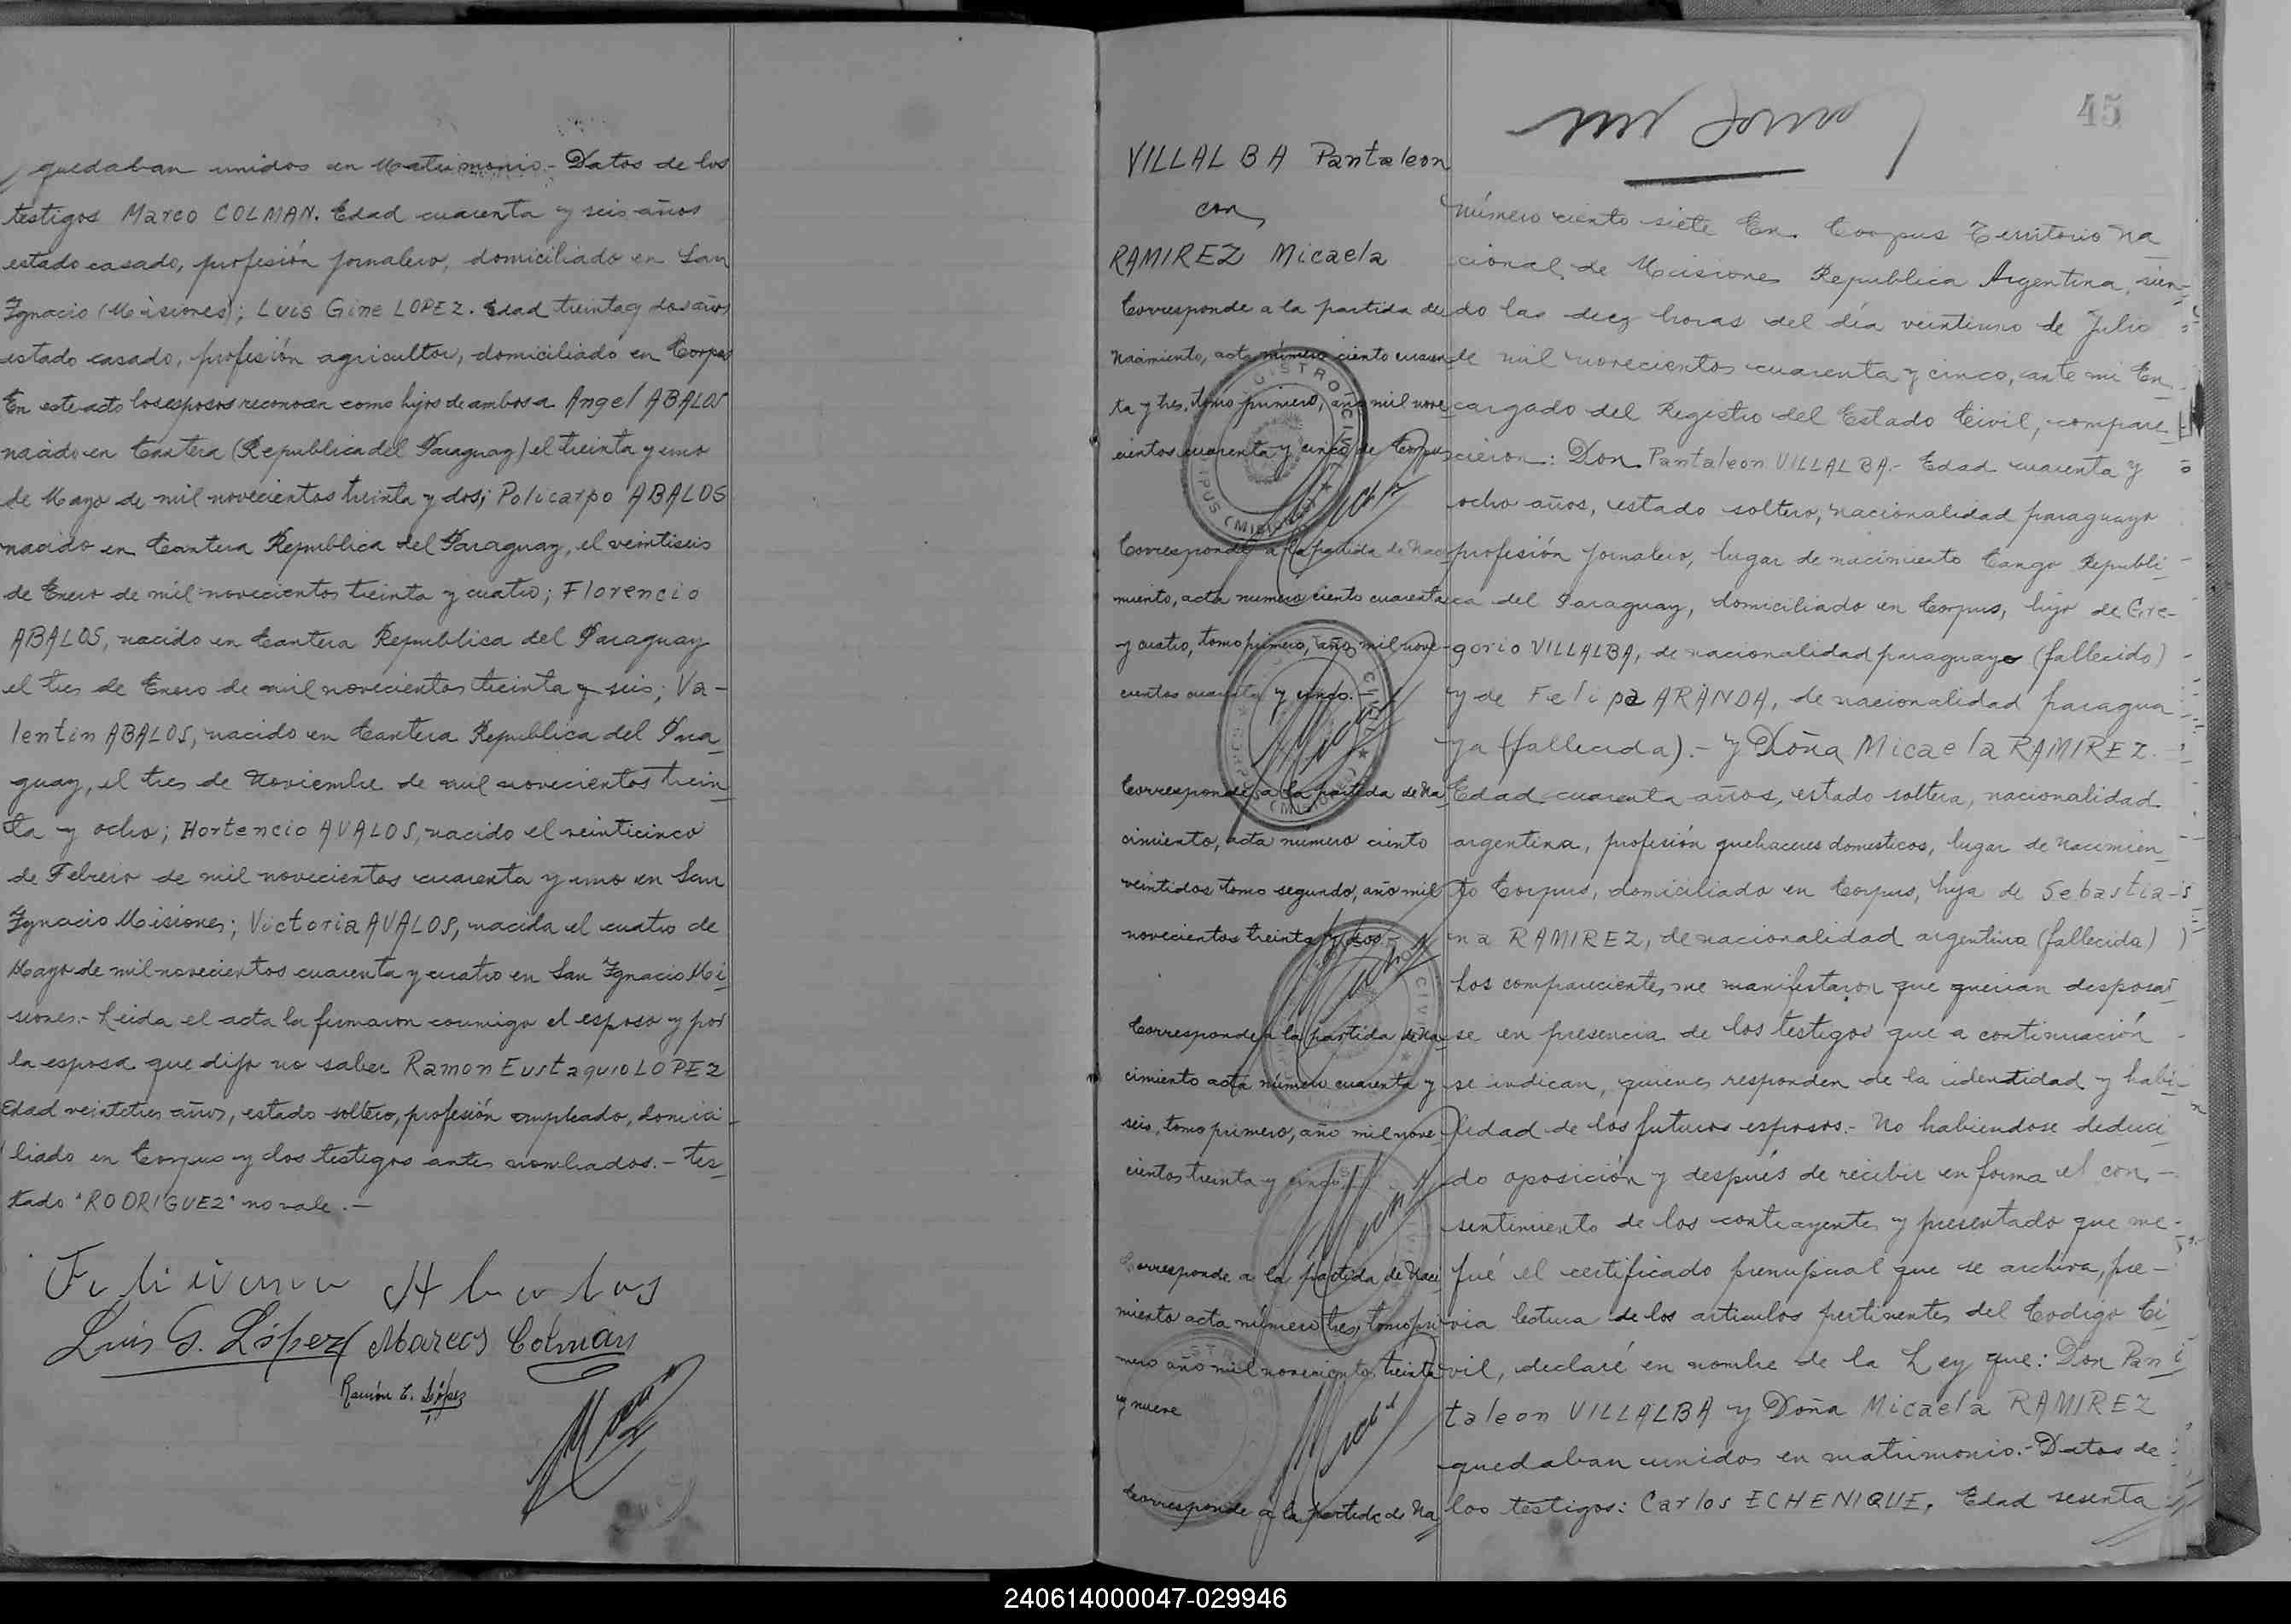 quedaban unidos en Matrimonio.- Datos de los
testigos Marco COLMAN. Edad cuarenta y seis años
estado casado, profesión jornalero, domiciliado en San
Ignacio (Misiones); Luis Gine LOPEZ. Edad treinta y dos años
estado casado, profesión agricultor, domiciliado en Corpus
En este acto los esposos reconocen como hijos de ambos a Angel ABALOS
nacido en Cantera (Republica del Paraguay) el treinta y uno
de Mayo de mil novecientos treinta y dos; Policarpo ABALOS
nacido en Cantera Republica del Paraguay, el veintiseis
de Enero de mil novecientos treinta y cuatro; Florencio
ABALOS, nacido en Cantera Republica del Paraguay
el tres de Enero de mil novecientos treinta y seis; Va-
lentin ABALOS, nacido en Cantera Republica del Para
guay, el tres de Noviembre de mil novecientos trein
ta y ocho; Hortencio AVALOS, nacido el veinticinco
de Febrero de mil novecientos cuarenta y uno en San
Ignacio Misiones; Victoria AVALOS, nacida el cuatro de
Mayo de mil novecientos cuarenta y cuatro en San Ignacio Mi
siones.- Leida el acta la firmaron conmigo el esposo y por
la esposa que dijo no saber Ramon Eustaquio LOPEZ
Edad veintetres años, estado soltero, profesión empleado, domici
liado en Corpus y los testigos antes nombrados.- Tes
tado "RODRIGUEZ" no vale.-
Feliciano Abalos
Luis G. López Marcos Colman
Ramón E. López
45
VILLALBA Pantaleon
con
RAMIREZ Micaela
Corresponde a la partida de
Nacimiento, acta número ciento cuaren
ta y tres, tomo primero, año mil nove
cientos cuarenta y cinco de Corpus
Corresponde a la partida de Naci
miento, acta numero ciento cuarenta
y cuatro, tomo primero, año mil nove
cientos cuarenta y cinco.
Corresponde a la partida de Na
cimiento, acta número ciento
veintidos tomo segundo, año mil
novecientos treinta y dos
Corresponde a la partida de Na
cimiento acta número cuarenta y
seis, tomo primero, año mil nove
cientos treinta y cinco
Corresponde a la partida de Naci
miento acta número tres, tomo pri
mero año mil novecientos treinta
y nueve
Corresponde a la partida de Na
Número ciento siete En Corpus Territorio Na
cional de Misiones Republica Argentina, sien-
do las diez horas del día veintiuno de Julio
de mil novecientos cuarenta y cinco, ante mi En
cargado del Registro del Estado Civil, compare
cieron: Don Pantaleon VILLALBA.- Edad cuarenta y
ocho años, estado soltero, nacionalidad paraguayo
profesión jornalero, lugar de nacimiento Cango Republi
ca del Paraguay, domiciliado en Corpus, hijo de Gre-
gorio VILLALBA, de nacionalidad paraguayo (fallecido)
y de Felipa ARANDA, de nacionalidad paragua
ya (fallecida).- y Doña Micaela RAMIREZ.
Edad cuarenta años, estado soltera, nacionalidad
argentina, profesión quehaceres domesticos, lugar de nacimien
to Corpus, domiciliado en Corpus, hija de Sebastia-
na RAMIREZ, de nacionalidad argentina (fallecida)
Los comparecientes me manifestaron que querian desposar
se en presencia de los testigos que a continuación
se indican, quienes responden de la identidad y habi-
lidad de los futuros esposos.- No habiendose deduci
do oposición y después de recibir en forma el con-
sentimiento de los contrayentes y presentado que me
fué el certificado prenupcial que se archiva, pre-
via lectura de los articulos pertinentes del Codigo Ci
vil, declaré en nombre de la Ley que: Don Pan
taleon VILLALBA y Doña Micaela RAMIREZ
quedaban unidos en matrimonio.- Datos de
los testigos: Carlos ECHENIQUE. Edad sesenta
240614000047-029946